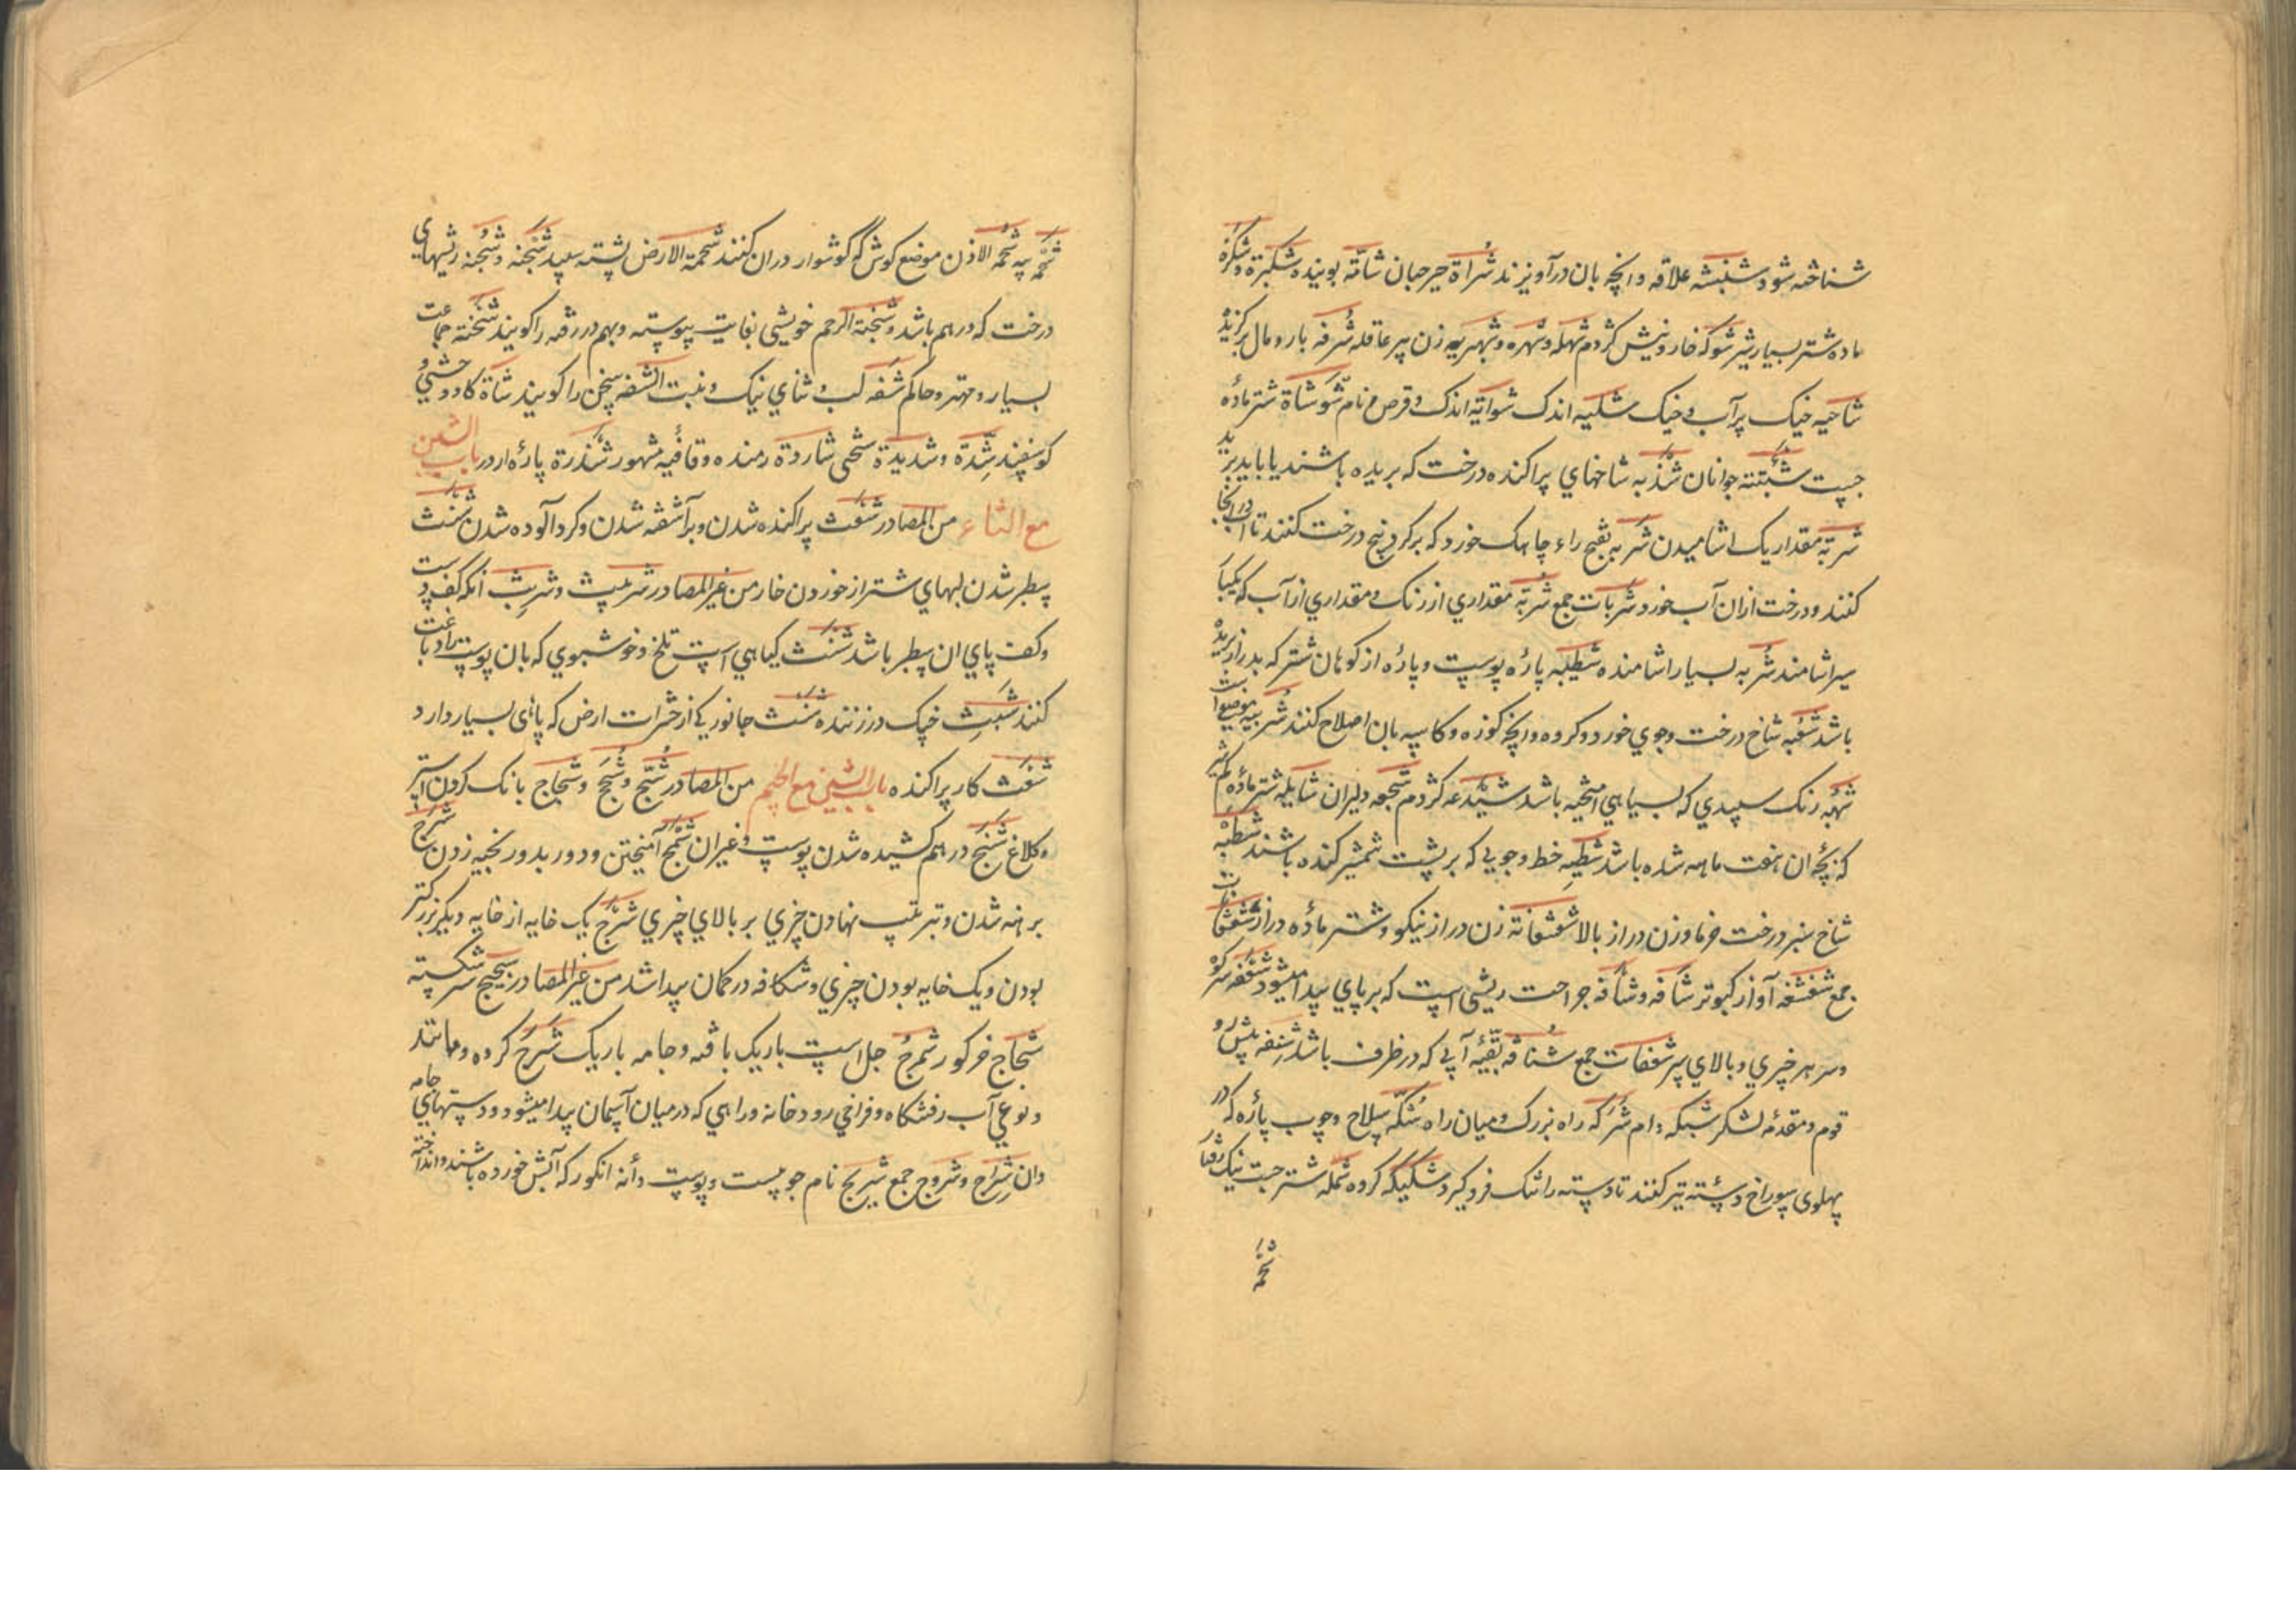 شناخته شود شنبشه علاقه وانچه بان درآویزند شراة حرجبان شاقه بوینده شکبزه وشکزه
ماده شتر بسیار شیر شوکه خار ونیش کژدم شهله وشهره وشهربه زن پیر عاقله شرفه بار ومال برگزیده
شاحیه خیک پر آب وخیک شکیه اندک شوایة اندک وقرص ونام شوشاة شتر ماده
چست شببته جوانان شذبه شاخهای پراکنده درخت که بریده باشند یا باید برید
شربة مقدار یک اشامیدن شربه بفتح راء چاهک خورد که بر کرد بیخ درخت کنند تا آب در انجا
کنند ودرخت ازان آب خورد شربات جمع شربة مقداری از رنک ومقداری از آب که یکبا
سیراشامند شربه بسیار اشامنده شطیبه پارهٔ پوست وپارهٔ از کوهان شتر که بدرازبریده
باشد شعبه شاخ درخت وجوی خورد وکروه وانچه کوزه وکاسه بان اصلاح کنند شربیه موضع است
شهبه رنک سپیدی که بسیاهی امیخته باشد شبدعه کژدم شجعه دلیران شایله شتر ماده کم شیر
که بچهٔ ان هفت ماهه شده باشد شطبه خط وجویی که بر پشت شمشیر کنده باشند شطبه
شاخ سبز درخت خرما وزن دراز بالا شغشغانة زن دراز نیکو وشتر ماده دراز شغشغانات
جمع شفشفه آواز کبوتر شافه وشافه جراحت ریشی است که بر پای پیدا میشود شعفه سر کوه
وسر هر چیزی وبالای پر شعفات جمع شنافه بقیهٔ آبی که در ظرف باشد شنفه پیش رو
قوم ومقدمهٔ لشکر شبکه دام شرکه راه بزرک ومیان راه شکه سلاح وچوب پارهٔ که در
پهلوی سوراخ دسته تیر کنند تا دسته را تنک فروگیرد شکیکه کروه شمله شتر جست نیک رفتار
شحمه
شحمه پیه شحمة الاذن موضع کوش که گوشوار دران کنند شحمة الارض پشته سپید شجنه وشجنه ریشهای
درخت که درهم باشد وشجنة الرحم خویشی بغایت پیوسته وبهم در رفته را کویند شحنة جماعت
بسیار ومهتر وحاکم شفه لب وثنای نیک وبنت الشفه سخن را کویند شاة کاو وحشی و
کوسفند شدة وشدیدة سختی شاردة رمنده وقافیه مشهور شذرة پارهٔ ارد ر باب الشین
مع الثاء من المصادر شعث پراکنده شدن وبرآشفته شدن وکردآلوده شدن شنث
سطبر شدن لبهای شتر از خوردن خار من غیر المصادر شرنبث وشربث انکه کف دست
وکف پای ان سطبر باشد شث کیاهی است تلخ وخوشبوی که بان پوست را دباغت
کنند شبث خیک درزننده شبث جانوری از حشرات ارض که پای بسیار دارد
شعث کار پراکنده باب الشین مع الجیم من المصادر شحج وشحج وشحاج بانک کردن استر
وکلاغ شنج درهم کشیده شدن پوست وغیران شمج آمیختن ودور بدور بخیه زدن شرج
برهنه شدن وبترتیب نهادن چیزی بر بالای چیزی شرج یک خایه از خایه دیکر بزرکتر
بودن ویک خایه بودن چیزی وشکافه در کمان پیدا شد من غیر المصادر شجیج سر شکسته
شحاج خر کور شمرج جل است باریک بافته وجامه باریک شرج کروه ومانند
ونوعی آب رفتنکاه وفراخی رودخانه وراهی که در میان آسمان پیدا میشود ودستهای جامه
دان شراج وشروج جمع شریج نام جویست وپوست دانه انکور که آبش خورده باشند وانداخته